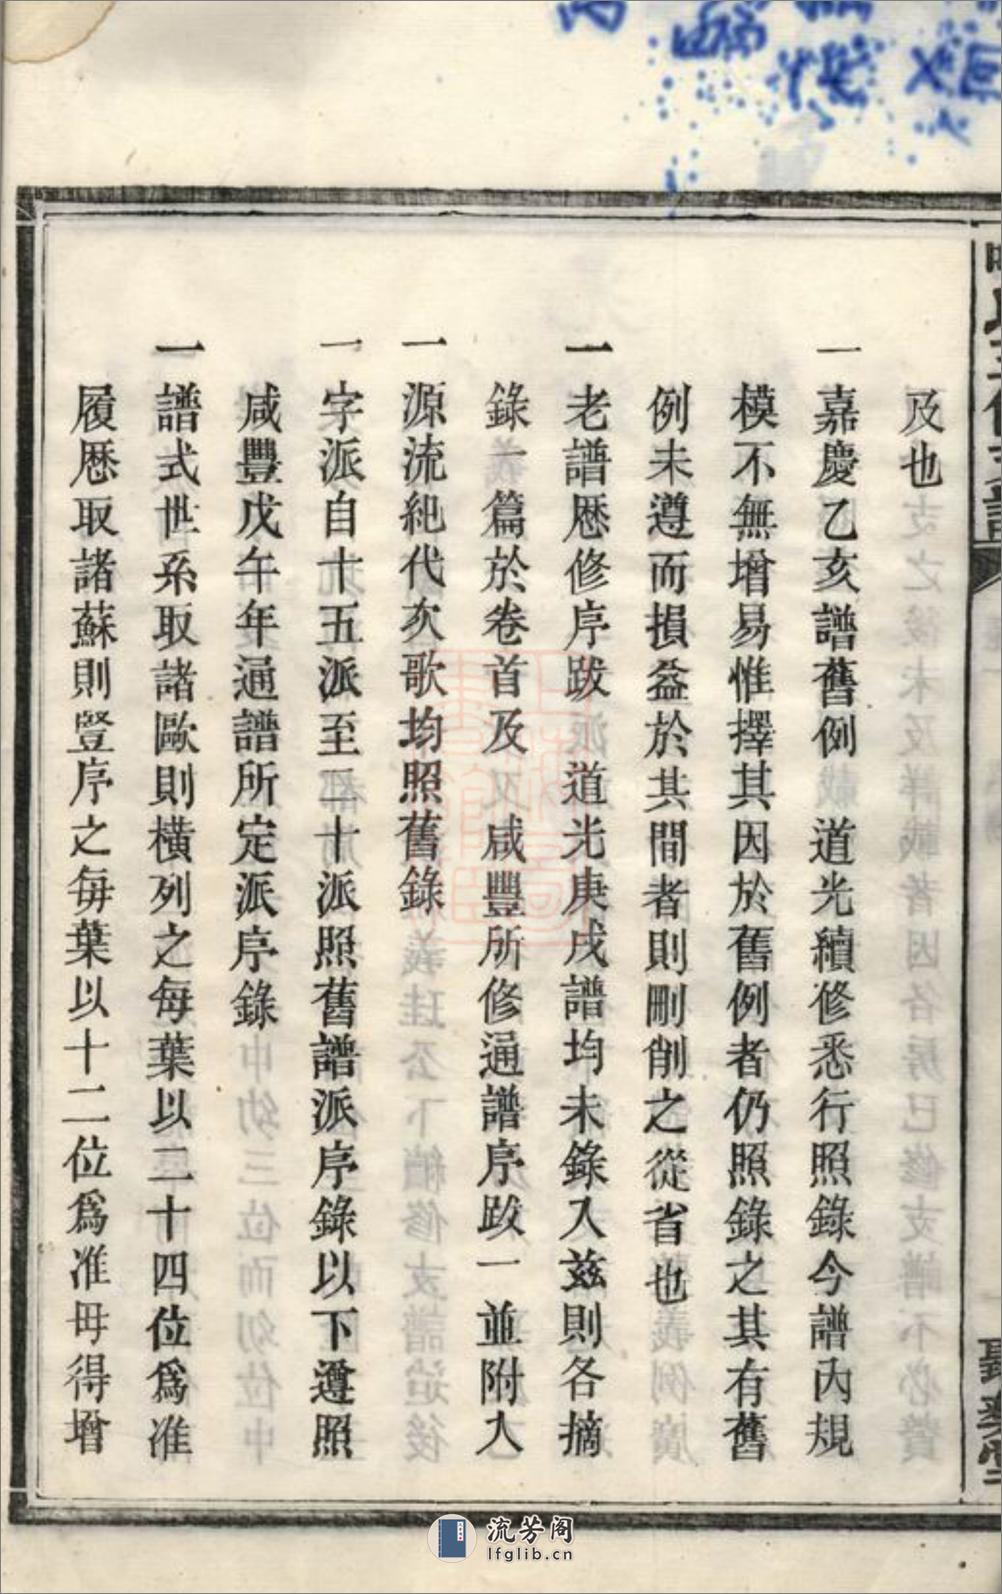 及也
一嘉慶乙亥譜舊例　道光續修悉行照錄今譜內規
模不無增易惟擇其因於舊例者仍照錄之其有舊
例未遵而損益於其間者則刪削之從省也
一老譜歷修序跋　道光庚戌譜均未錄入茲則各摘
錄一篇於卷首及　咸豐所修通譜序跋一並附入
一源流紀代次歌均照舊錄
一字派自十五派至二十派照舊譜派序錄以下遵照
咸豐戊午年通譜所定派序錄
一譜式世系取諸歐則橫列之每葉以二十四位爲准
履歷取諸蘇則豎序之每葉以十二位爲准毋得增
流芳阁
lfglib.cn